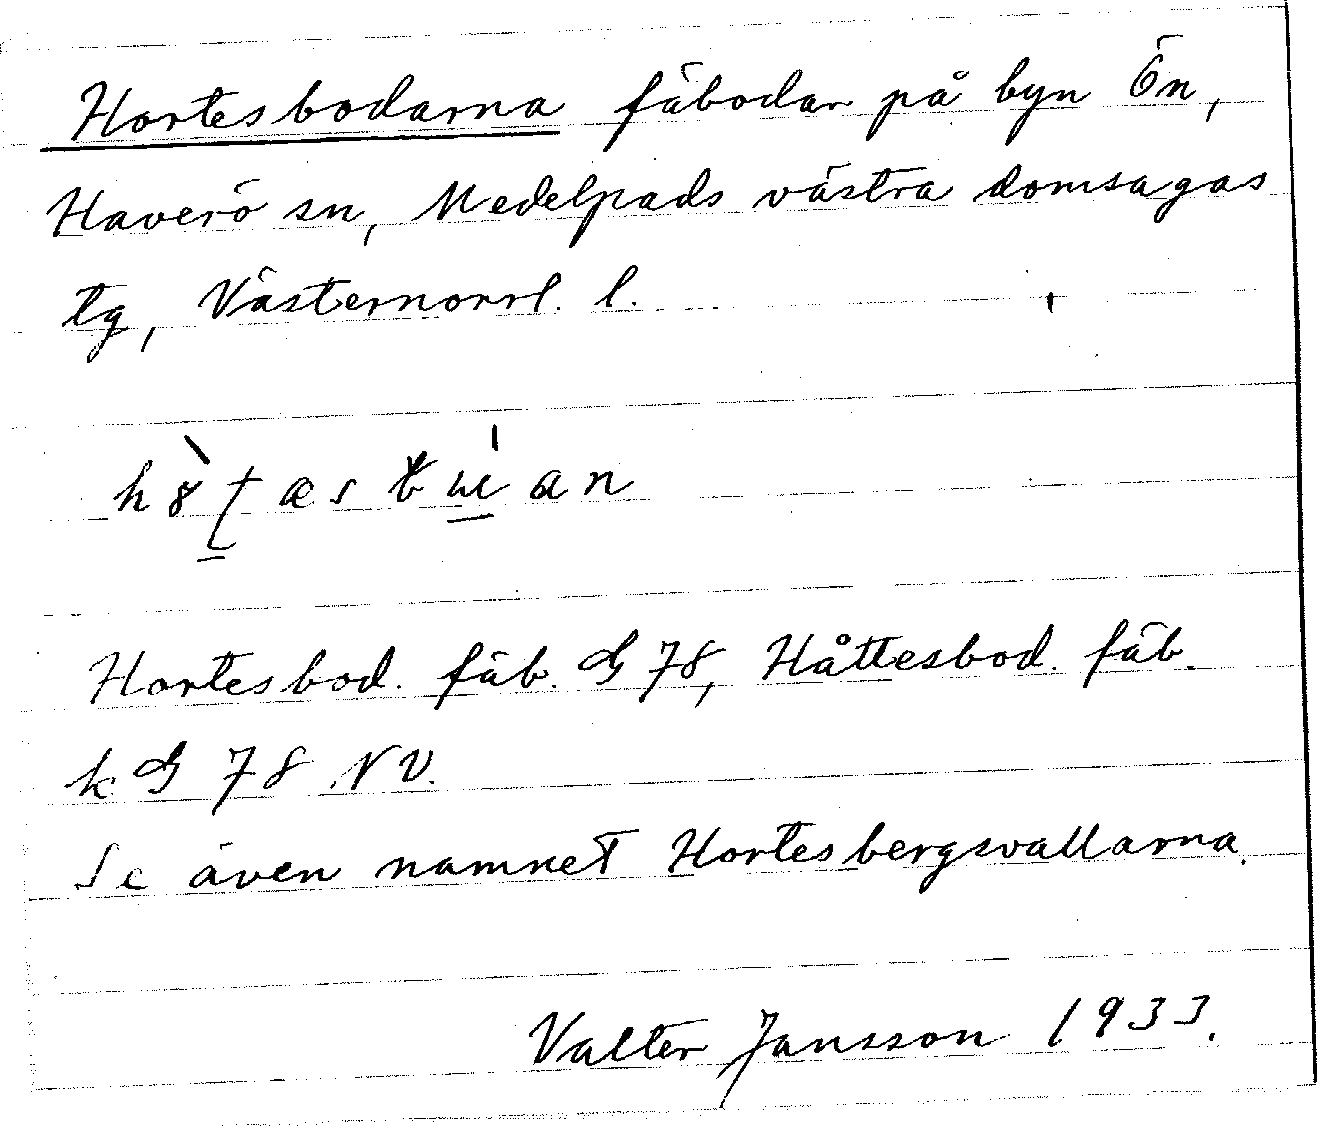 Hortesbodarna fäbodar på byn Ön,
Haverö sn, Medelpads västra domsagas
tg, Västernorrl. l.
Hortesbod. fäb. G 78, Håttesbod. fäb.
k G 78 NV.
Se även namnet Hortesbergsvallarna.
Valter Jansson 1933.